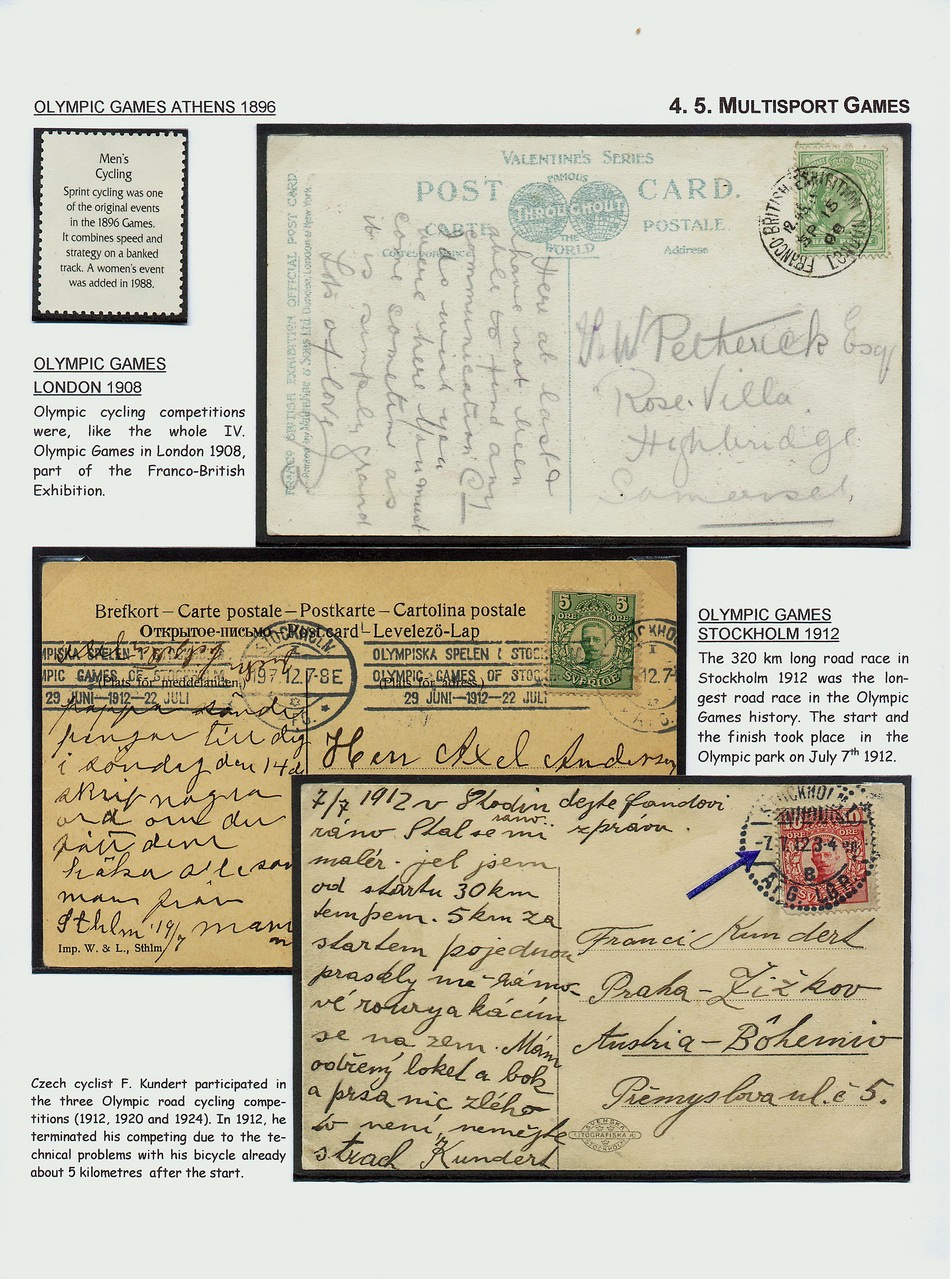 OLYMPIC GAMES ATHENS 1896
4. 5. MULTISPORT GAMES
Men's
Cycling
Sprint cycling was one
of the original events
in the 1896 Games.
It combines speed and
strategy on a banked
track. A women's event
was added in 1988.
VALENTINE'S SERIES
POST CARD.
FAMOUS
THROUGHOUT
THE
WORLD
CARTE POSTALE
Correspondence
Address
FRANCO BRITISH EXHIBITION OFFICIAL POST CARD
FRANCO-BRITISH EXHIBITION
LONDON
SP 15
08
Here at last I
have not been
able to find any
communication
I do wish you
were here You must
come sometime as
it is simply grand
Lots of love
H. W Petherick Esq
Rose. Villa.
Highbridge
Somerset.
OLYMPIC GAMES
LONDON 1908
Olympic cycling competitions
were, like the whole IV.
Olympic Games in London 1908,
part of the Franco-British
Exhibition.
Brefkort – Carte postale – Postkarte – Cartolina postale
Открытое-письмо – Postcard – Levelező-Lap
(Plats för meddelanden)
(Plats för adress)
MPISKA SPELEN
MPIC GAMES OF
29 JUNI–1912–22 JULI
STOCKHOLM
19 7 12.7-8 E
OLYMPISKA SPELEN I STOC
OLYMPIC GAMES OF STOC
29 JUNI–1912–22 JULI
5 ÖRE 5 ÖRE
SVERIGE
pappa sände
pengar till dig
i söndag den 14d
skrif några
ord om du
fått dem
Sthlm 19/7
Herr Axel Anderson
Imp. W. & L., Sthlm
OLYMPIC GAMES
STOCKHOLM 1912
The 320 km long road race in
Stockholm 1912 was the lon-
gest road race in the Olympic
Games history. The start and
the finish took place in the
Olympic park on July 7th 1912.
7/7 1912 v
ráno. Stal se mi
malér. jel jsem
od startu 30 km
tempem. 5 km za
startem pojednou
praskly mě
vé roury a kácím
se na zem. Mám
odřený loket a bok
a prsa nic zlého
to není, nemějte
strach Kundert
STOCKHOLM
-7.7.12 3-4
B
AFG. LBR
Franci Kundert
Praha – Žižkov
Austria – Böhemio
Přemyslova ul. č 5.
SVENSKA
LITOGRAFISKA
STOCKHOLM
Czech cyclist F. Kundert participated in
the three Olympic road cycling compe-
titions (1912, 1920 and 1924). In 1912, he
terminated his competing due to the te-
chnical problems with his bicycle already
about 5 kilometres after the start.